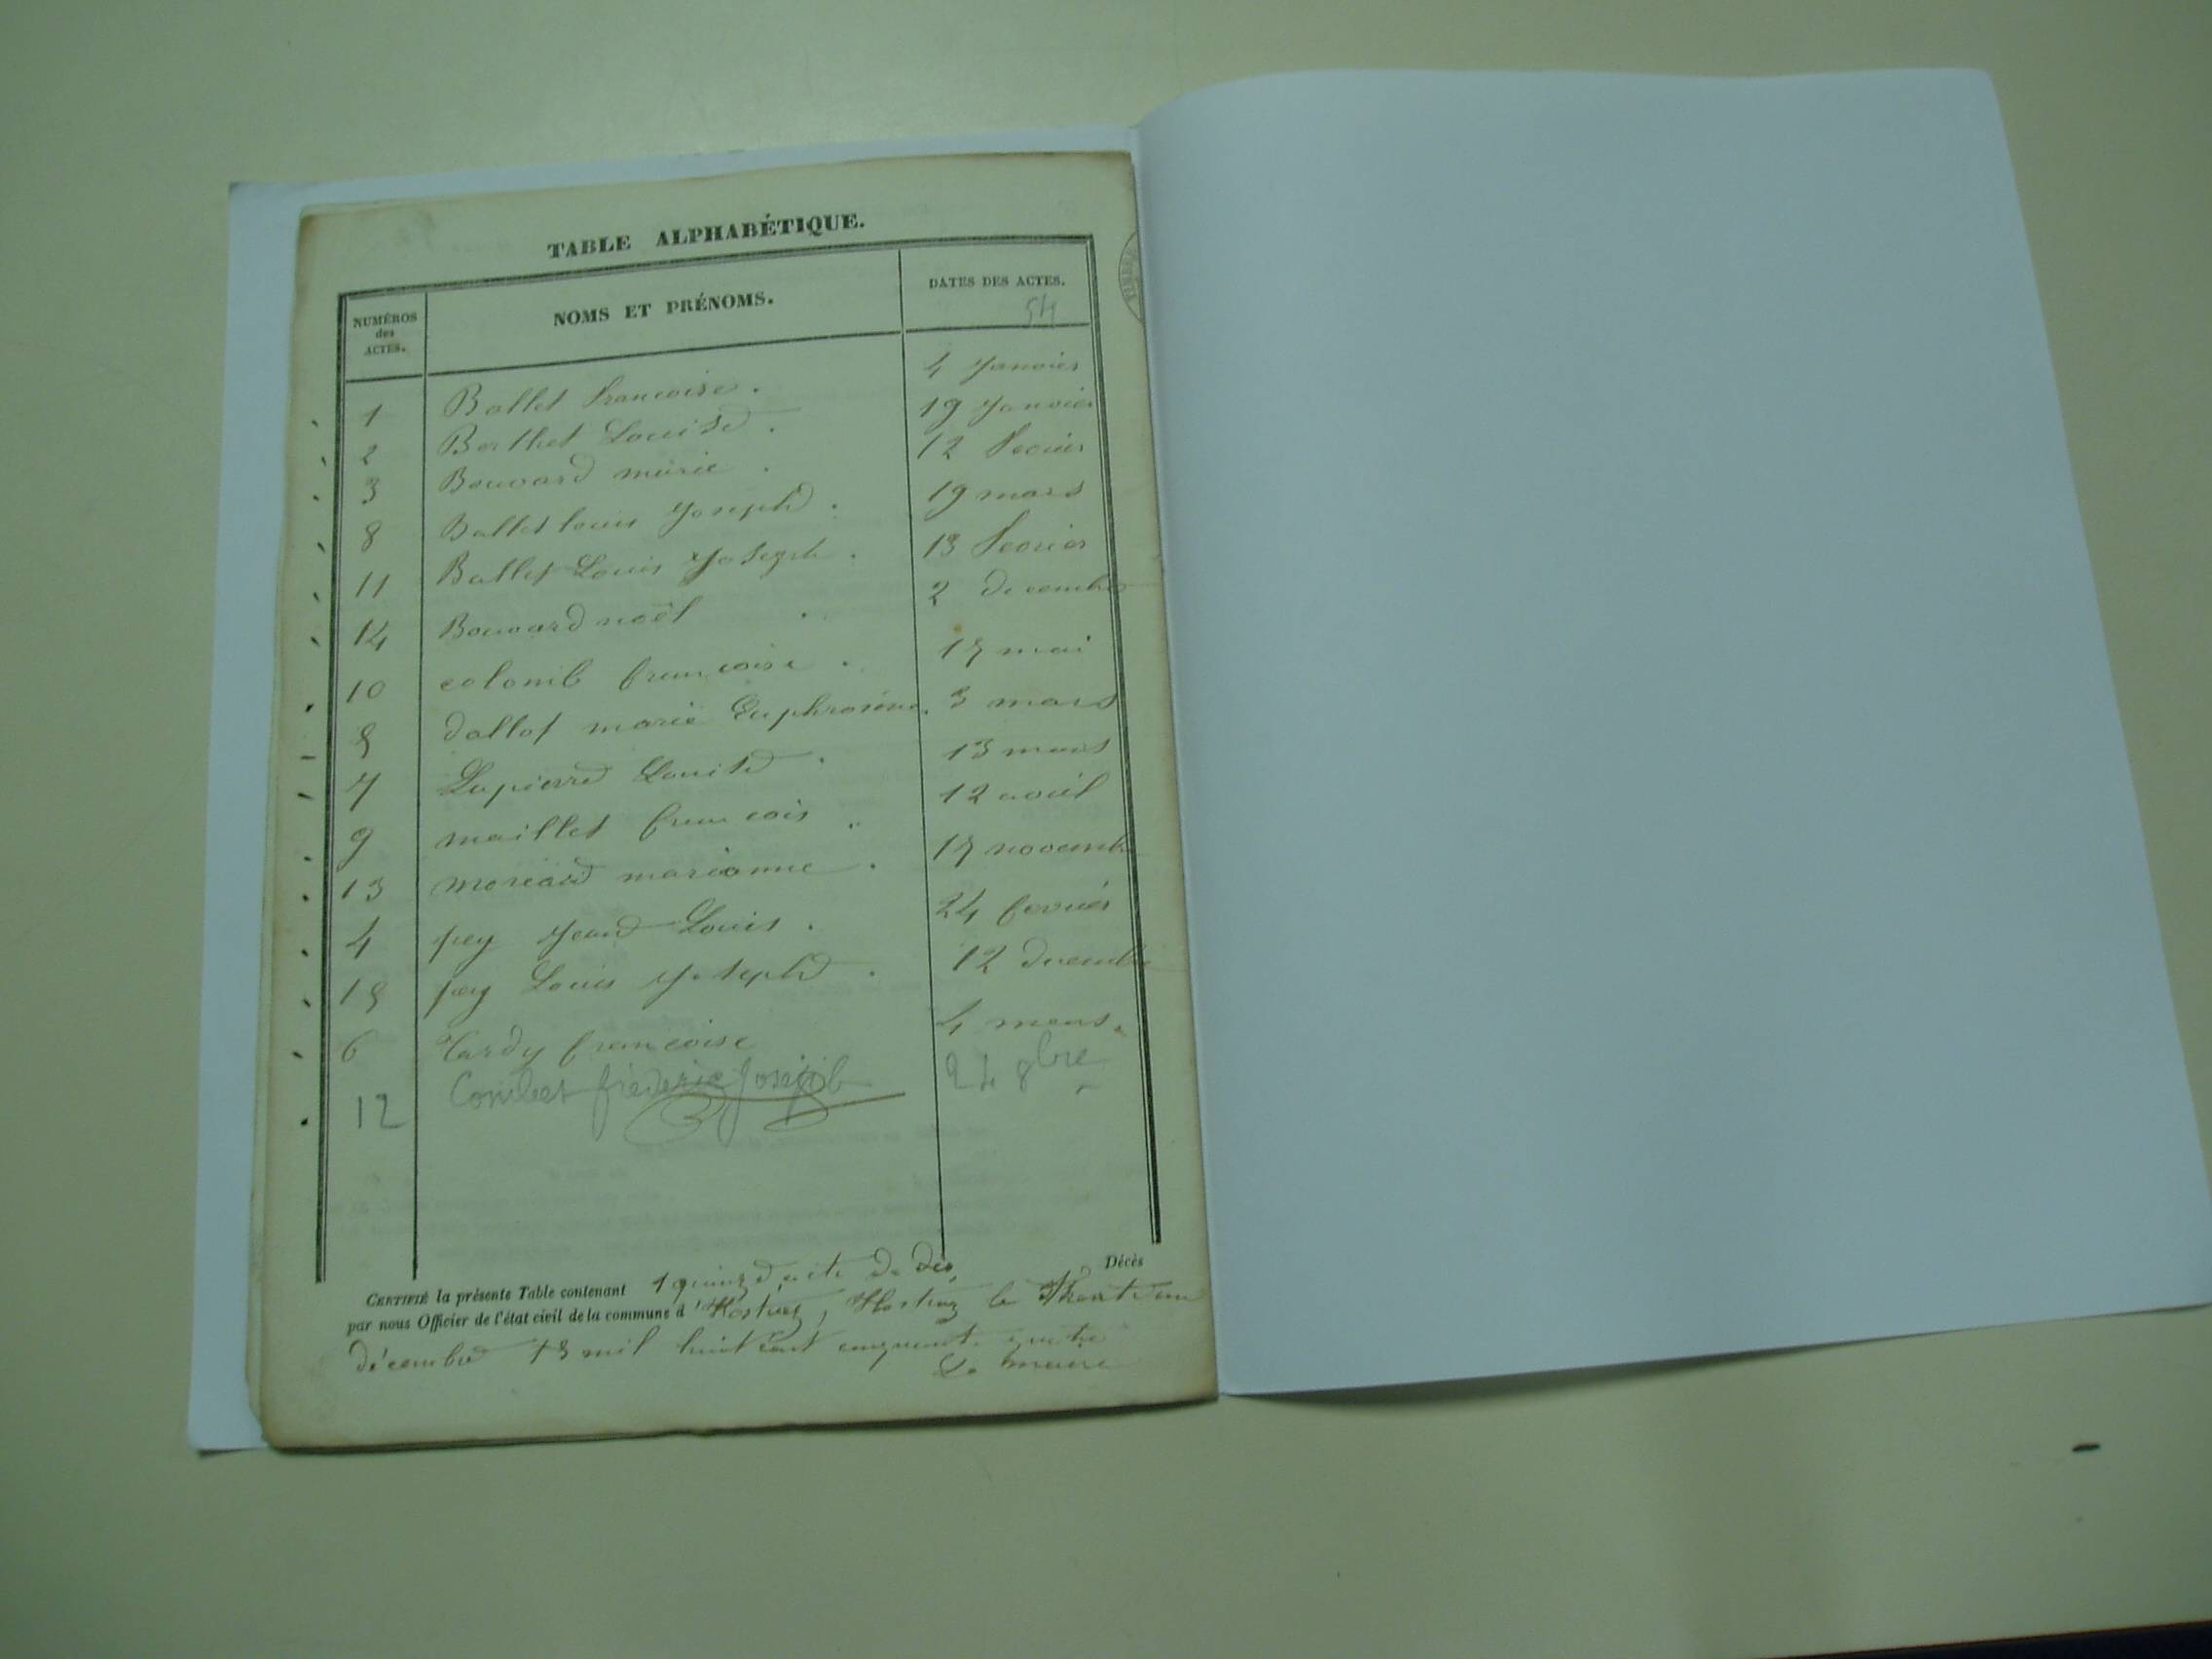 TABLE ALPHABÉTIQUE.
NUMÉROS des ACTES. NOMS ET PRÉNOMS. DATES DES ACTES.
54
1 Ballet francoise. 4 Janvier
2 Berthet Louise. 19 Janvier
3 Bouvard marie. 12 fevrier
8 Ballet louis Joseph. 19 mars
11 Ballet Louis Joseph. 13 fevrier
14 Bouvard noël 2 decembre
10 colomb francoise. 15 mai
5 dallot marie Euphrosine. 3 mars
7 Lapierre Louise. 13 mars
9 maillet francois 12 avril
13 marianne. 15 novembre
4 pey Jean Louis. 24 fevrier
15 pey Louis Joseph. 12 decembre
6 Tardy francoise 4 mars.
12 Combet frederic Joseph 24 8bre
CERTIFIÉ la présente Table contenant quinze acte de Décès
par nous Officier de l'état civil de la commune d' le
décembre mil huit cent cinquante quatre
Le maire